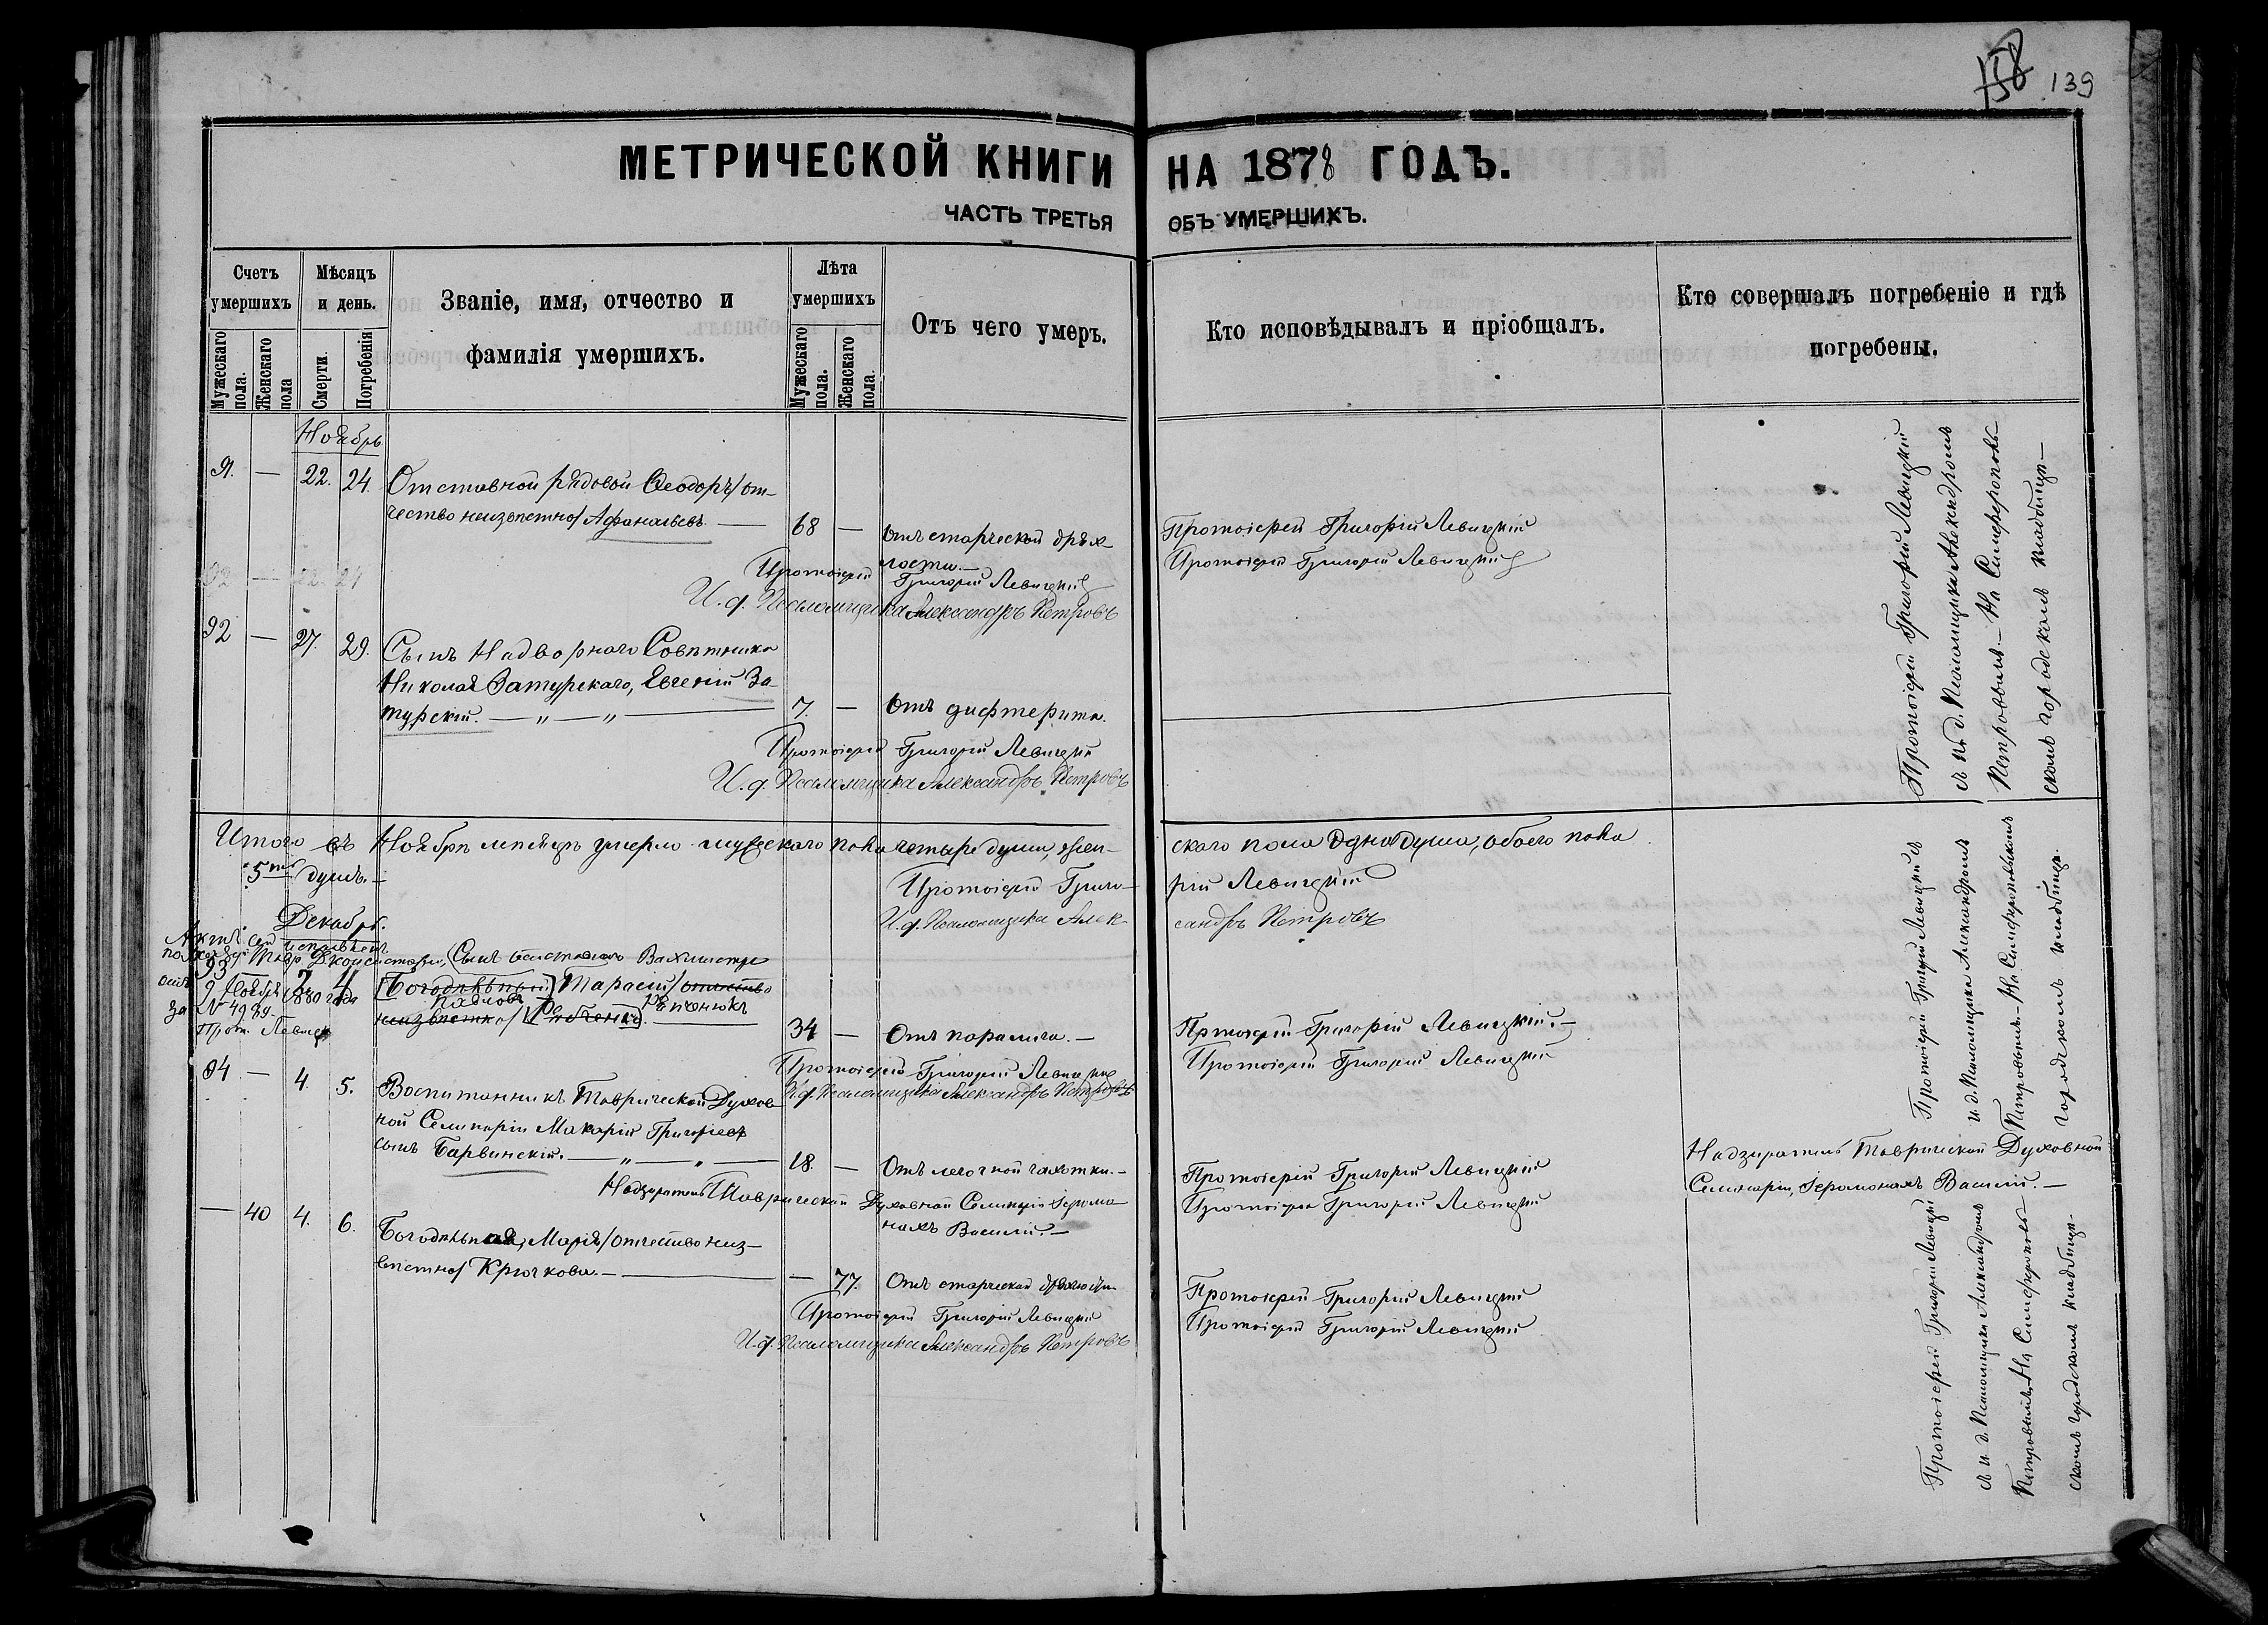 158 139
МЕТРИЧЕСКОЙ КНИГИ НА 1878 ГОДЪ.
ЧАСТЬ ТРЕТЬЯ ОБЪ УМЕРШИХЪ.
Счетъ умершихъ
Мужескаго пола.
Женскаго пола
Мѣсяцъ и день.
Смерти.
Погребенія
Званіе, имя, отчество и
фамилія умершихъ.
Лѣта умершихъ
Мужескаго пола.
Женскаго пола.
Отъ чего умеръ.
Кто исповѣдывалъ и пріобщалъ.
Кто совершалъ погребеніе и гдѣ
погребены.
Ноябрь
91. — 22. 24. Отставной рядовой Ѳеодоръ/от-
чество неизвѣстно/Афанасьевъ. — 68 — Отъ старческой дрях-
лости.—
Протоіерей Григорій Левицкій
Протоіерей Григорій Левицкій
Протоіерей Григорій Левицкій
И. д. Псаломщика Александръ Петровъ
92 — 22. 24
92 — 27. 29. Сынъ Надворнаго Совѣтника
Николая Затурскаго, Евгеній За-
турскій. — „ — „ — 7. — Отъ дифтерита.
Протоіерей Григорій Левицкій
И. д. Псаломщика Александръ Петровъ
Протоіерей Григорій Левицкій
съ и. д. Псаломщика Александромъ
Петровымъ.— На Симферополь-
скомъ городскомъ кладбищѣ.—
Итого въ Ноябрѣ мѣсяцѣ умерло мужескаго пола четыре души, жен-
скаго пола одна душа, обоего пола
5ть душъ.—
Протоіерей Григо-
рій Левицкій
И. д. Псаломщика Алек-
сандръ Петровъ
Декабрь.
Актъ сей исправленъ
по Тавр. Д. Консисторіи,
отъ 9 Ноября 1880 года
за № 4984.
Прот. Левицк
93 2 4 Сынъ отставного Вахмистра
[Богодѣльный] Тарасій/отчество
Павловъ Рѣпченюкъ
неизвѣстно/ [Рябченко]. — 34 — Отъ паралича.—
Протоіерей Григорій Левицкій.—
Протоіерей Григорій Левицкій
Протоіерей Григорій Левицкій
И. д. Псаломщика Александръ Петровъ
94 — 4. 5. Воспитанникъ Таврической Духов-
ной Семинаріи Макарій Григорьевъ
сынъ Барвинскій. — „ — „ — 18. — Отъ легочной чахотки.—
Протоіерей Григорій Левицкій
Протоіерей Григорій Левицкій
Надзиратель Таврической Духовной Семинаріи Іеромо-
нахъ Василій.—
Протоіерей Григорій Левицкій съ
и. д. Псаломщика Александромъ
Петровымъ.— На Симферопольскомъ
городскомъ кладбищѣ.
Надзиратель Таврической Духовной
Семинаріи, Іеромонахъ Василій.—
— 40 4. 6. Богодѣльная, Марія/отчество неиз-
вѣстно/ Крючкова.— — 77. Отъ старческой дряхлости
Протоіерей Григорій Левицкій
Протоіерей Григорій Левицкій
Протоіерей Григорій Левицкій
И. д. Псаломщика Александръ Петровъ
Протоіерей Григорій Левицкій
съ и. д. Псаломщика Александромъ
Петровымъ. На Симферополь-
скомъ городскомъ кладбищѣ.